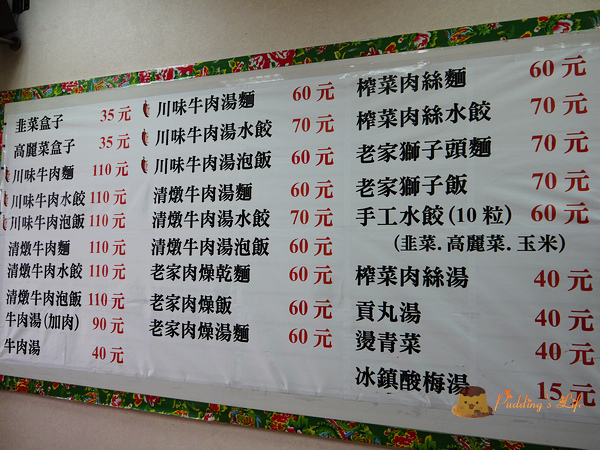 韭菜盒子 35元
高麗菜盒子 35元
川味牛肉麵 110元
川味牛肉水餃 110元
川味牛肉泡飯 110元
清燉牛肉麵 110元
清燉牛肉水餃 110元
清燉牛肉泡飯 110元
牛肉湯(加肉) 90元
牛肉湯 40元
川味牛肉湯麵 60元
川味牛肉湯水餃 70元
川味牛肉湯泡飯 60元
清燉牛肉湯麵 60元
清燉牛肉湯水餃 70元
清燉牛肉湯泡飯 60元
老家肉燥乾麵 60元
老家肉燥飯 60元
老家肉燥湯麵 60元
榨菜肉絲麵 60元
榨菜肉絲水餃 70元
老家獅子頭麵 70元
老家獅子飯 70元
手工水餃(10粒) 60元
(韭菜.高麗菜.玉米)
榨菜肉絲湯 40元
貢丸湯 40元
燙青菜 40元
冰鎮酸梅湯 15元
Pudding's Life